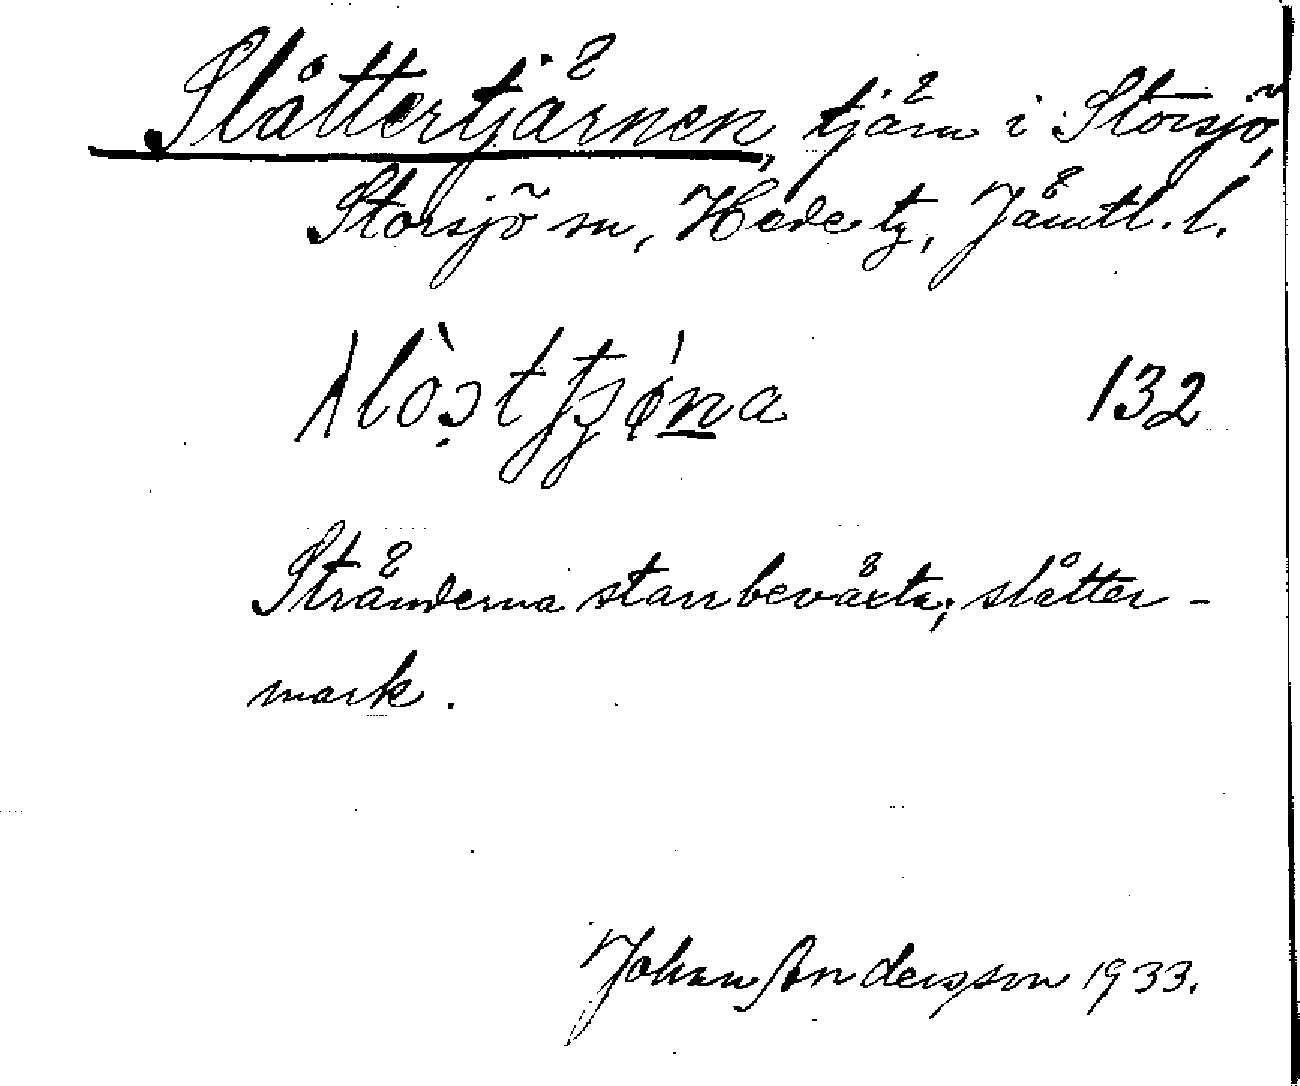 Slåttertjärnen, tjärn i Storsjö,
Storsjö sn, Hede tg, Jämtl. l.
132
Stränderna starrbeväxta; slåtter-
mark.
Johan Andersson 1933.